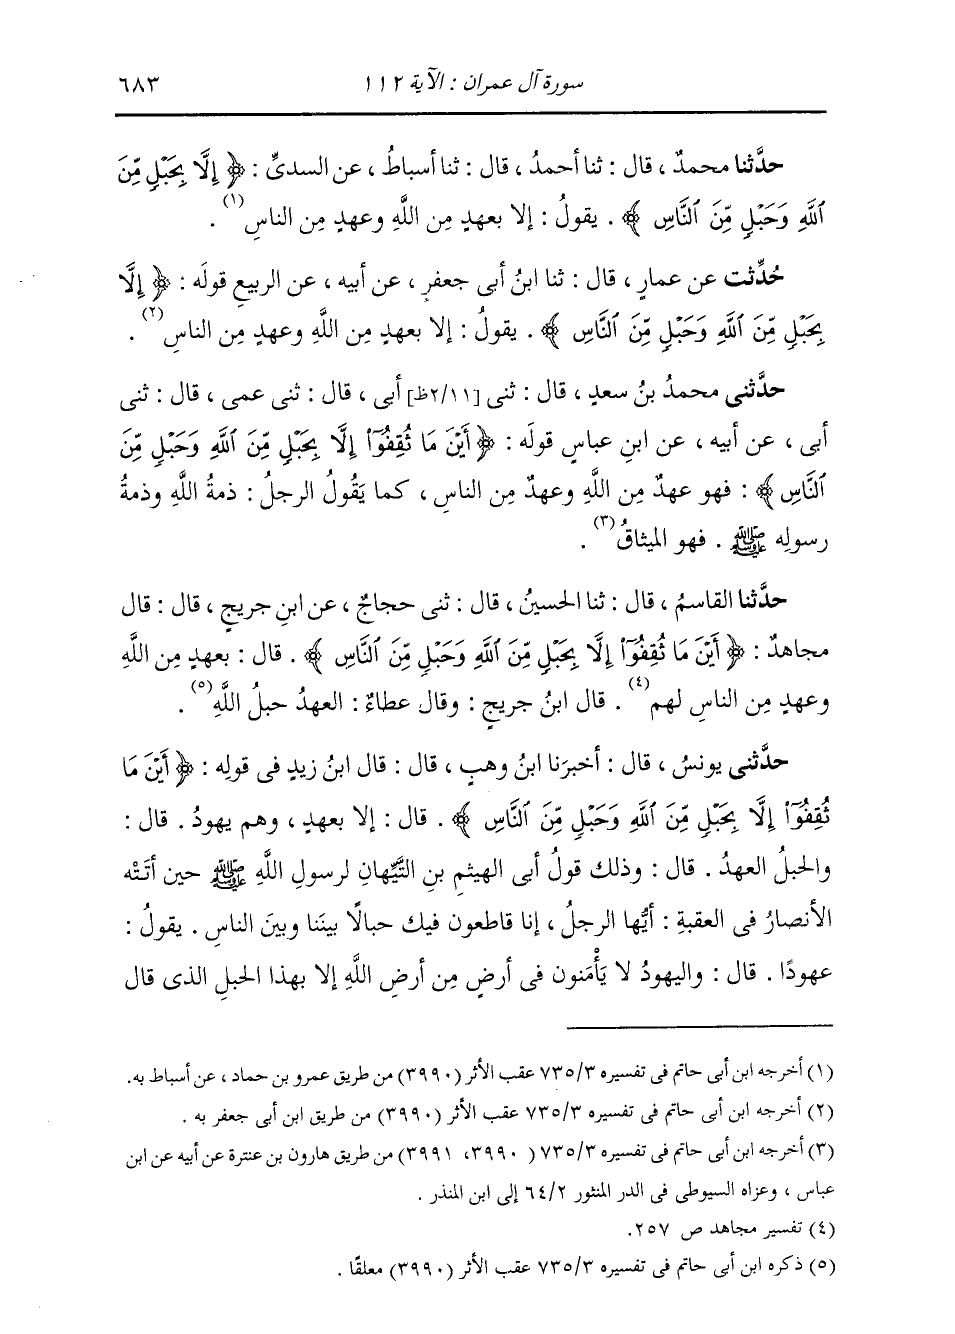 سورة آل عمران : الآية ١١٢ ٦٨٣
حدَّثنا محمدٌ ، قال : ثنا أحمدُ ، قال : ثنا أسباطُ ، عن السدىِّ : ﴿ إِلَّا بِحَبْلٍ مِّنَ
ٱللَّهِ وَحَبْلٍ مِّنَ ٱلنَّاسِ ﴾ . يقولُ : إلا بعهدٍ مِن اللَّهِ وعهدٍ مِن الناسِ(١) .
حُدِّثت عن عمارٍ ، قال : ثنا ابنُ أبى جعفرٍ ، عن أبيه ، عن الربيعِ قولَه : ﴿ إِلَّا
بِحَبْلٍ مِّنَ ٱللَّهِ وَحَبْلٍ مِّنَ ٱلنَّاسِ ﴾ . يقولُ : إلا بعهدٍ مِن اللَّهِ وعهدٍ مِن الناسِ(٢) .
حدَّثنى محمدُ بنُ سعدٍ ، قال : ثنى [٢/١١ظ] أبى ، قال : ثنى عمى ، قال : ثنى
أبى ، عن أبيه ، عن ابنِ عباسٍ قولَه : ﴿ أَيْنَ مَا ثُقِفُوٓا۟ إِلَّا بِحَبْلٍ مِّنَ ٱللَّهِ وَحَبْلٍ مِّنَ
ٱلنَّاسِ ﴾ : فهو عهدٌ مِن اللَّهِ وعهدٌ مِن الناسِ ، كما يَقُولُ الرجلُ : ذمةُ اللَّهِ وذمةُ
رسولِه ﷺ . فهو الميثاقُ(٣) .
حدَّثنا القاسمُ ، قال : ثنا الحسينُ ، قال : ثنى حجاجٌ ، عن ابنِ جريجٍ ، قال : قال
مجاهدٌ : ﴿ أَيْنَ مَا ثُقِفُوٓا۟ إِلَّا بِحَبْلٍ مِّنَ ٱللَّهِ وَحَبْلٍ مِّنَ ٱلنَّاسِ ﴾ . قال : بعهدٍ مِن اللَّهِ
وعهدٍ مِن الناسِ لهم(٤) . قال ابنُ جريجٍ : وقال عطاءٌ : العهدُ حبلُ اللَّهِ(٥) .
حدَّثنى يونسُ ، قال : أخبرَنا ابنُ وهبٍ ، قال : قال ابنُ زيدٍ فى قولِه : ﴿ أَيْنَ مَا
ثُقِفُوٓا۟ إِلَّا بِحَبْلٍ مِّنَ ٱللَّهِ وَحَبْلٍ مِّنَ ٱلنَّاسِ ﴾ . قال : إلا بعهدٍ ، وهم يهودُ . قال :
والحبلُ العهدُ . قال : وذلك قولُ أبى الهيثمِ بنِ التَّيِّهانِ لرسولِ اللَّهِ ﷺ حين أتَتْه
الأنصارُ فى العقبةِ : أيُّها الرجلُ ، إنا قاطعون فيك حبالًا بينَنا وبينَ الناسِ . يقولُ :
عهودًا . قال : واليهودُ لا يَأْمَنون فى أرضٍ مِن أرضِ اللَّهِ إلا بهذا الحبلِ الذى قال
(١) أخرجه ابن أبى حاتم فى تفسيره ٧٣٥/٣ عقب الأثر (٣٩٩٠) من طريق عمرو بن حماد ، عن أسباط به.
(٢) أخرجه ابن أبى حاتم فى تفسيره ٧٣٥/٣ عقب الأثر (٣٩٩٠) من طريق ابن أبى جعفر به .
(٣) أخرجه ابن أبى حاتم فى تفسيره ٧٣٥/٣ ( ٣٩٩٠، ٣٩٩١) من طريق هارون بن عنترة عن أبيه عن ابن
عباس ، وعزاه السيوطى فى الدر المنثور ٦٤/٢ إلى ابن المنذر .
(٤) تفسير مجاهد ص ٢٥٧.
(٥) ذكره ابن أبى حاتم فى تفسيره ٧٣٥/٣ عقب الأثر (٣٩٩٠) معلقًا .